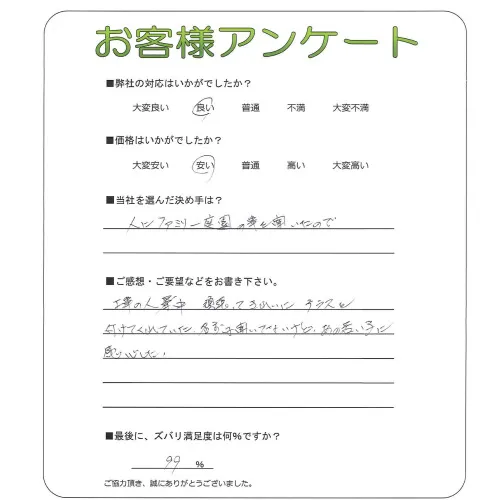 お客様アンケート
■弊社の対応はいかがでしたか？
大変良い 良い 普通 不満 大変不満
■価格はいかがでしたか？
大変安い 安い 普通 高い 大変高い
■当社を選んだ決め手は？
人にファミリー庭園の事を聞いたので
■ご感想・ご要望などをお書き下さい。
工事の人暑中 頑張ってきれいにテラスを
付けてくれていた 名前は聞いてないけど、あの若い子に
感心した。
■最後に、ズバリ満足度は何%ですか？
99 %
ご協力頂き、誠にありがとうございました。